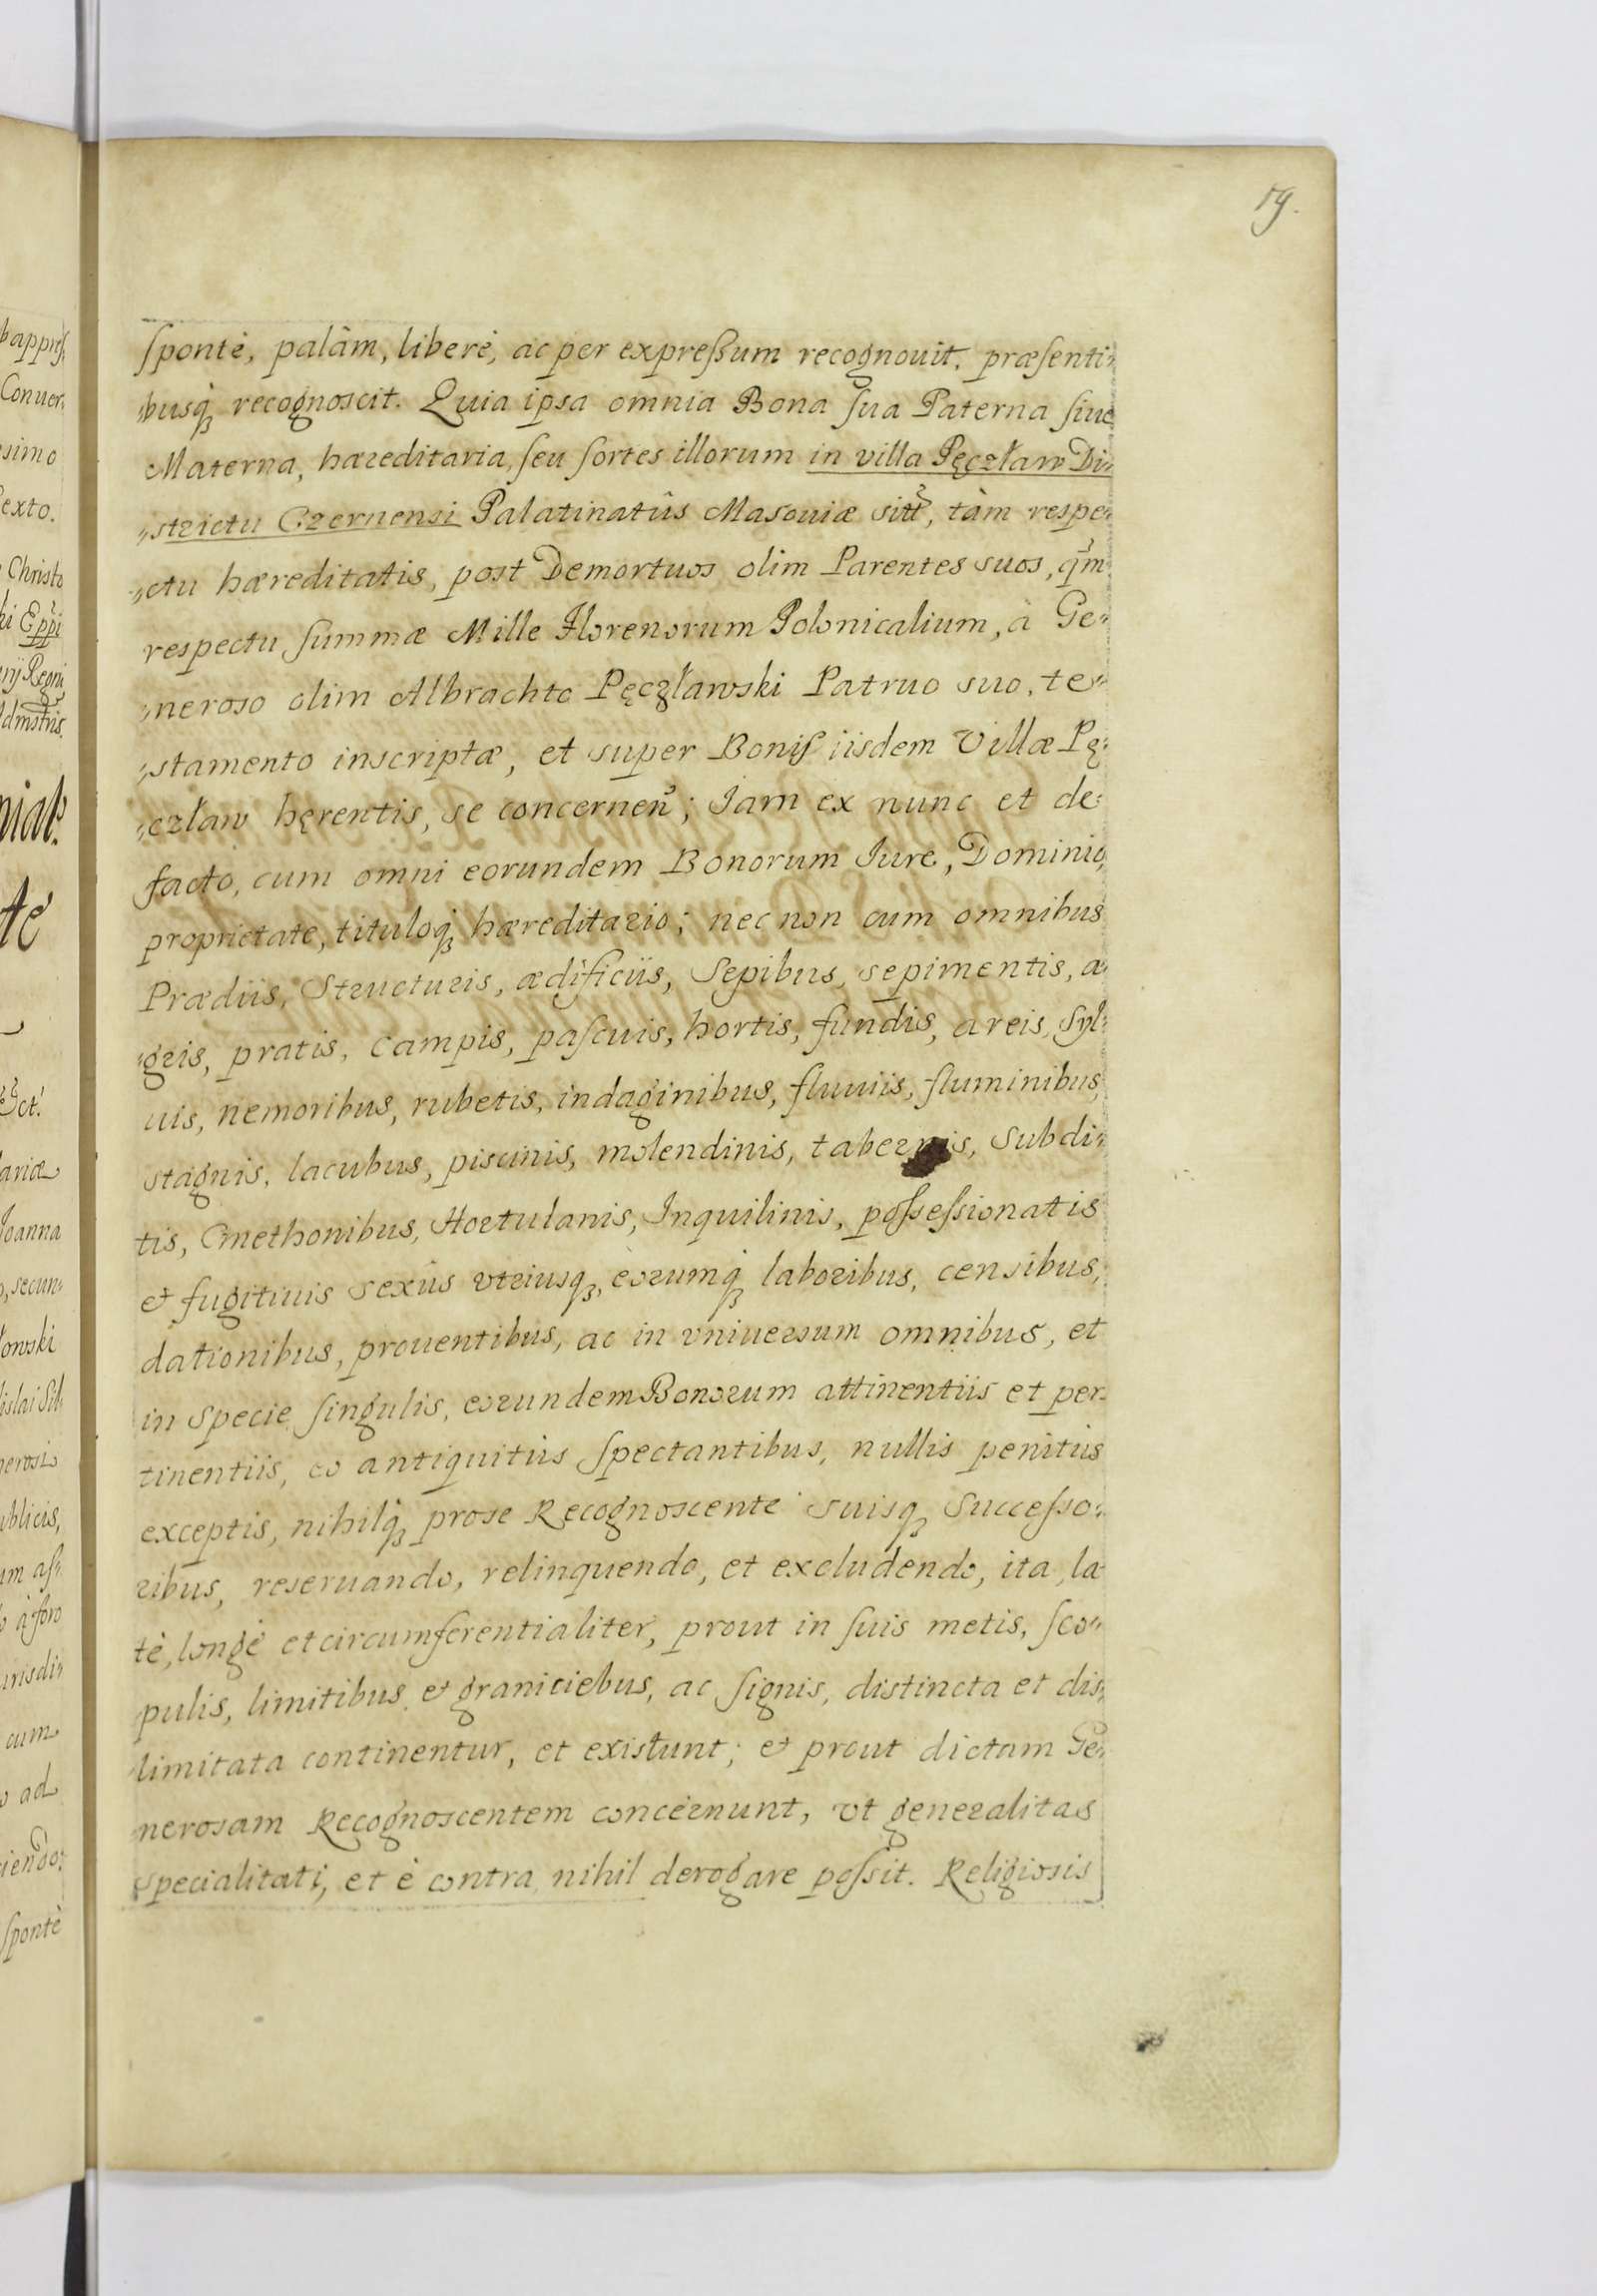 19.
sponte, palâm, liberè, ac per expreſsum recognouit, præſenti„
„busq́ꝫ recognoscit. Quia ipsa omnia Bona ſua Paterna ſiue
Materna, hæreditaria, ſeu ſortes illorum in villa Pęczław Di„
„strictu Czernensi Palatinatûs Masouiæ sitt̃, tàm respe„
„ctu hæreditatis, post Demortuos olim Parentes suos, q̃m
respectu ſummæ Mille Florenorum Polonicalium, à Ge„
„neroso olim Albrachto Pęczławski Patruo suo, te„
„stamento inscriptæ, et super Bonis iisdem Villæ Pę„
„czław hęrentis, se concerneñ; Iam ex nunc et de„
facto, cum omni eorundem Bonorum Iure, Dominio,
proprietate, tituloq́ꝫ hæreditario; nec non cum omnibus
Prædiis, Structuris, ædificiis, Sepibus, sepimentis, a„
„gris, pratis, campis, paſcuis, hortis, fundis, areis, Syl„
uis, nemoribus, rubetis, indaginibus, fluuiis, fluminibus,
stagnis, lacubus, piscinis, molendinis, tabernis, Subdi„
tis, Cmethonibus, Hortulanis, Inquilinis, poſseſsionatis
et fugitiuis sexûs vtriusqꝫ, eorumq́ꝫ laboribus, censibus,
dationibus, prouentibus, ac in vniuersum omnibus, et
in specie ſingulis, eorundem Bonorum attinentiis et per„
tinentiis, eo antiquitùs ſpectantibus, nullis penitùs
exceptis, nihilq́ꝫ prose Recognoscente suisqꝫ Succeſso„
ribus, reseruando, relinquendo, et excludendo, ita, la„
tè, longè et circumferentialiter, prout in ſuis metis, ſco„
pulis, limitibus et graniciebus, ac ſignis, distincta et dis„
„limitata continentur, et existunt; et prout dictam Ge„
„nerosam Recognoscentem concernunt, vt generalitas
specialitati, et è contra, nihil derogare poſsit. Religiosis